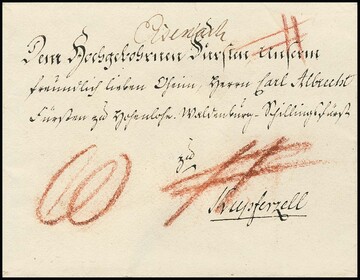 Eisenach
Dem Hochgebohrnen Fürsten Unserm
freundlich lieben Oheim, Herrn Carl Albrecht
Fürsten zu Hohenlohe-Waldenburg-Schillingsfürst
zu
Kupferzell